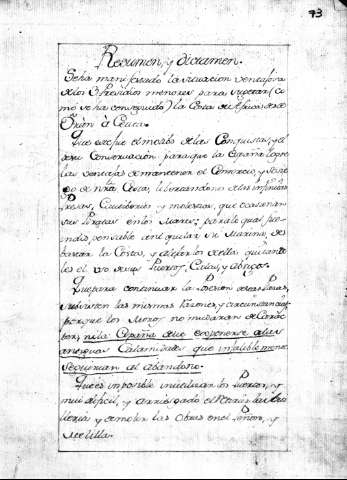 73
Resumen, y Dictamen.
Se ha manifestado la situacion ventajosa
de los 3 Presidios menores para sugetar (co
mo se ha conseguido) la Costa de Africa desde
Oràn à Ceuta.
Que este fue el motibo de las Conquistas, y el
de su Conservacion para que la España logre
las ventajas de mantener el Comercio, y
de nrãs Costas, libertandonos de las
Presas, Cautiberios y molestias, que ocasionan
sus Piratas en los Mares; para lo qual fue
indispensable aniquilar su Marina, des
baratar la Costa, y alejarlos de ella quitando
les el uso de sus Puertos, Calas, y abrigos.
Que para continuar la Posesion de las Plazas,
subsisten las mismas razones, y circunstancias
porque los Moros no mudaran de Carac
ter, ni la España debe exponerse a las
antiguas Calamidades que infaliblemente
seguirian al abandono.
Que es imposible inutilizar los Puertos, y
mui dificil, y arriesgado el retirar la Arti
lleria y demoler las Obras en el Peñon, y
Melilla.